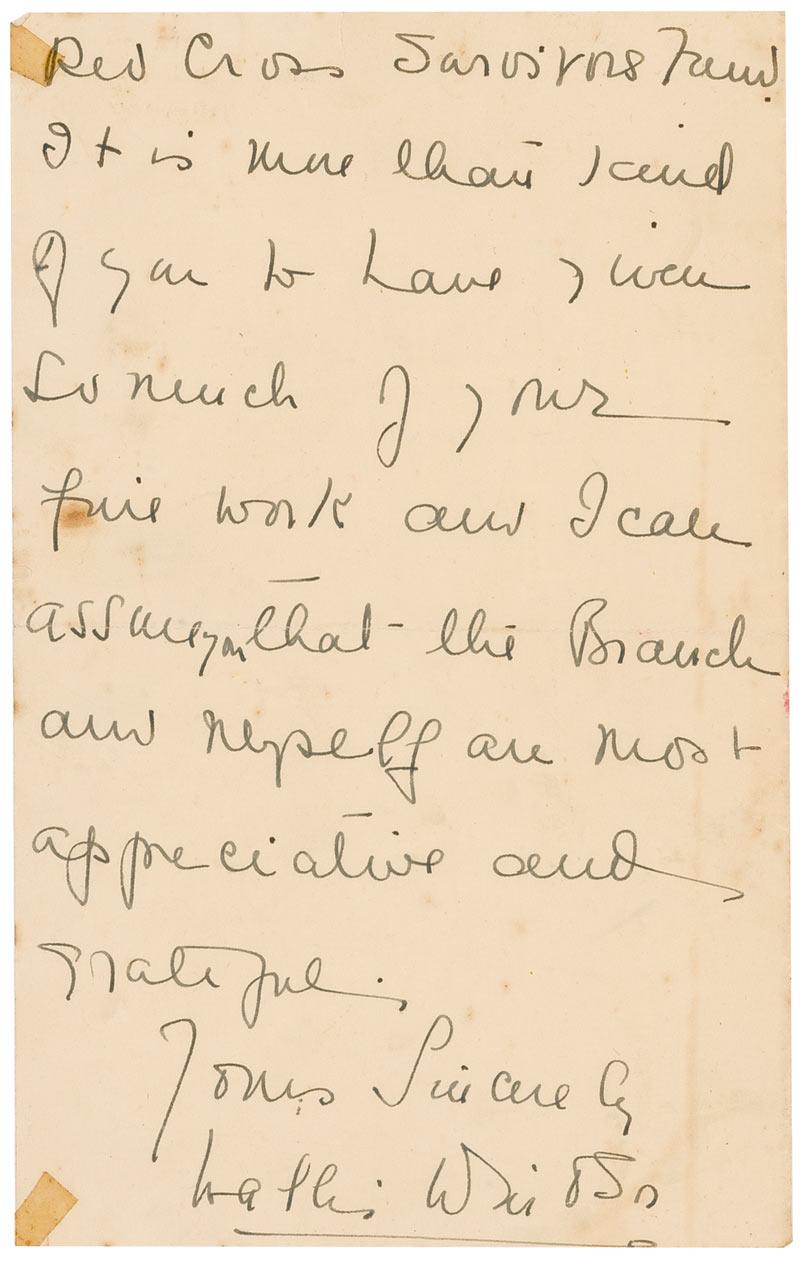 Red Cross Survivors Fund.
It is more than kind
of you to have given
so much of your
fine work and I can
assure you that the Branch
and myself are most
appreciative and
grateful.
Yours Sincerely
Wallis Windsor